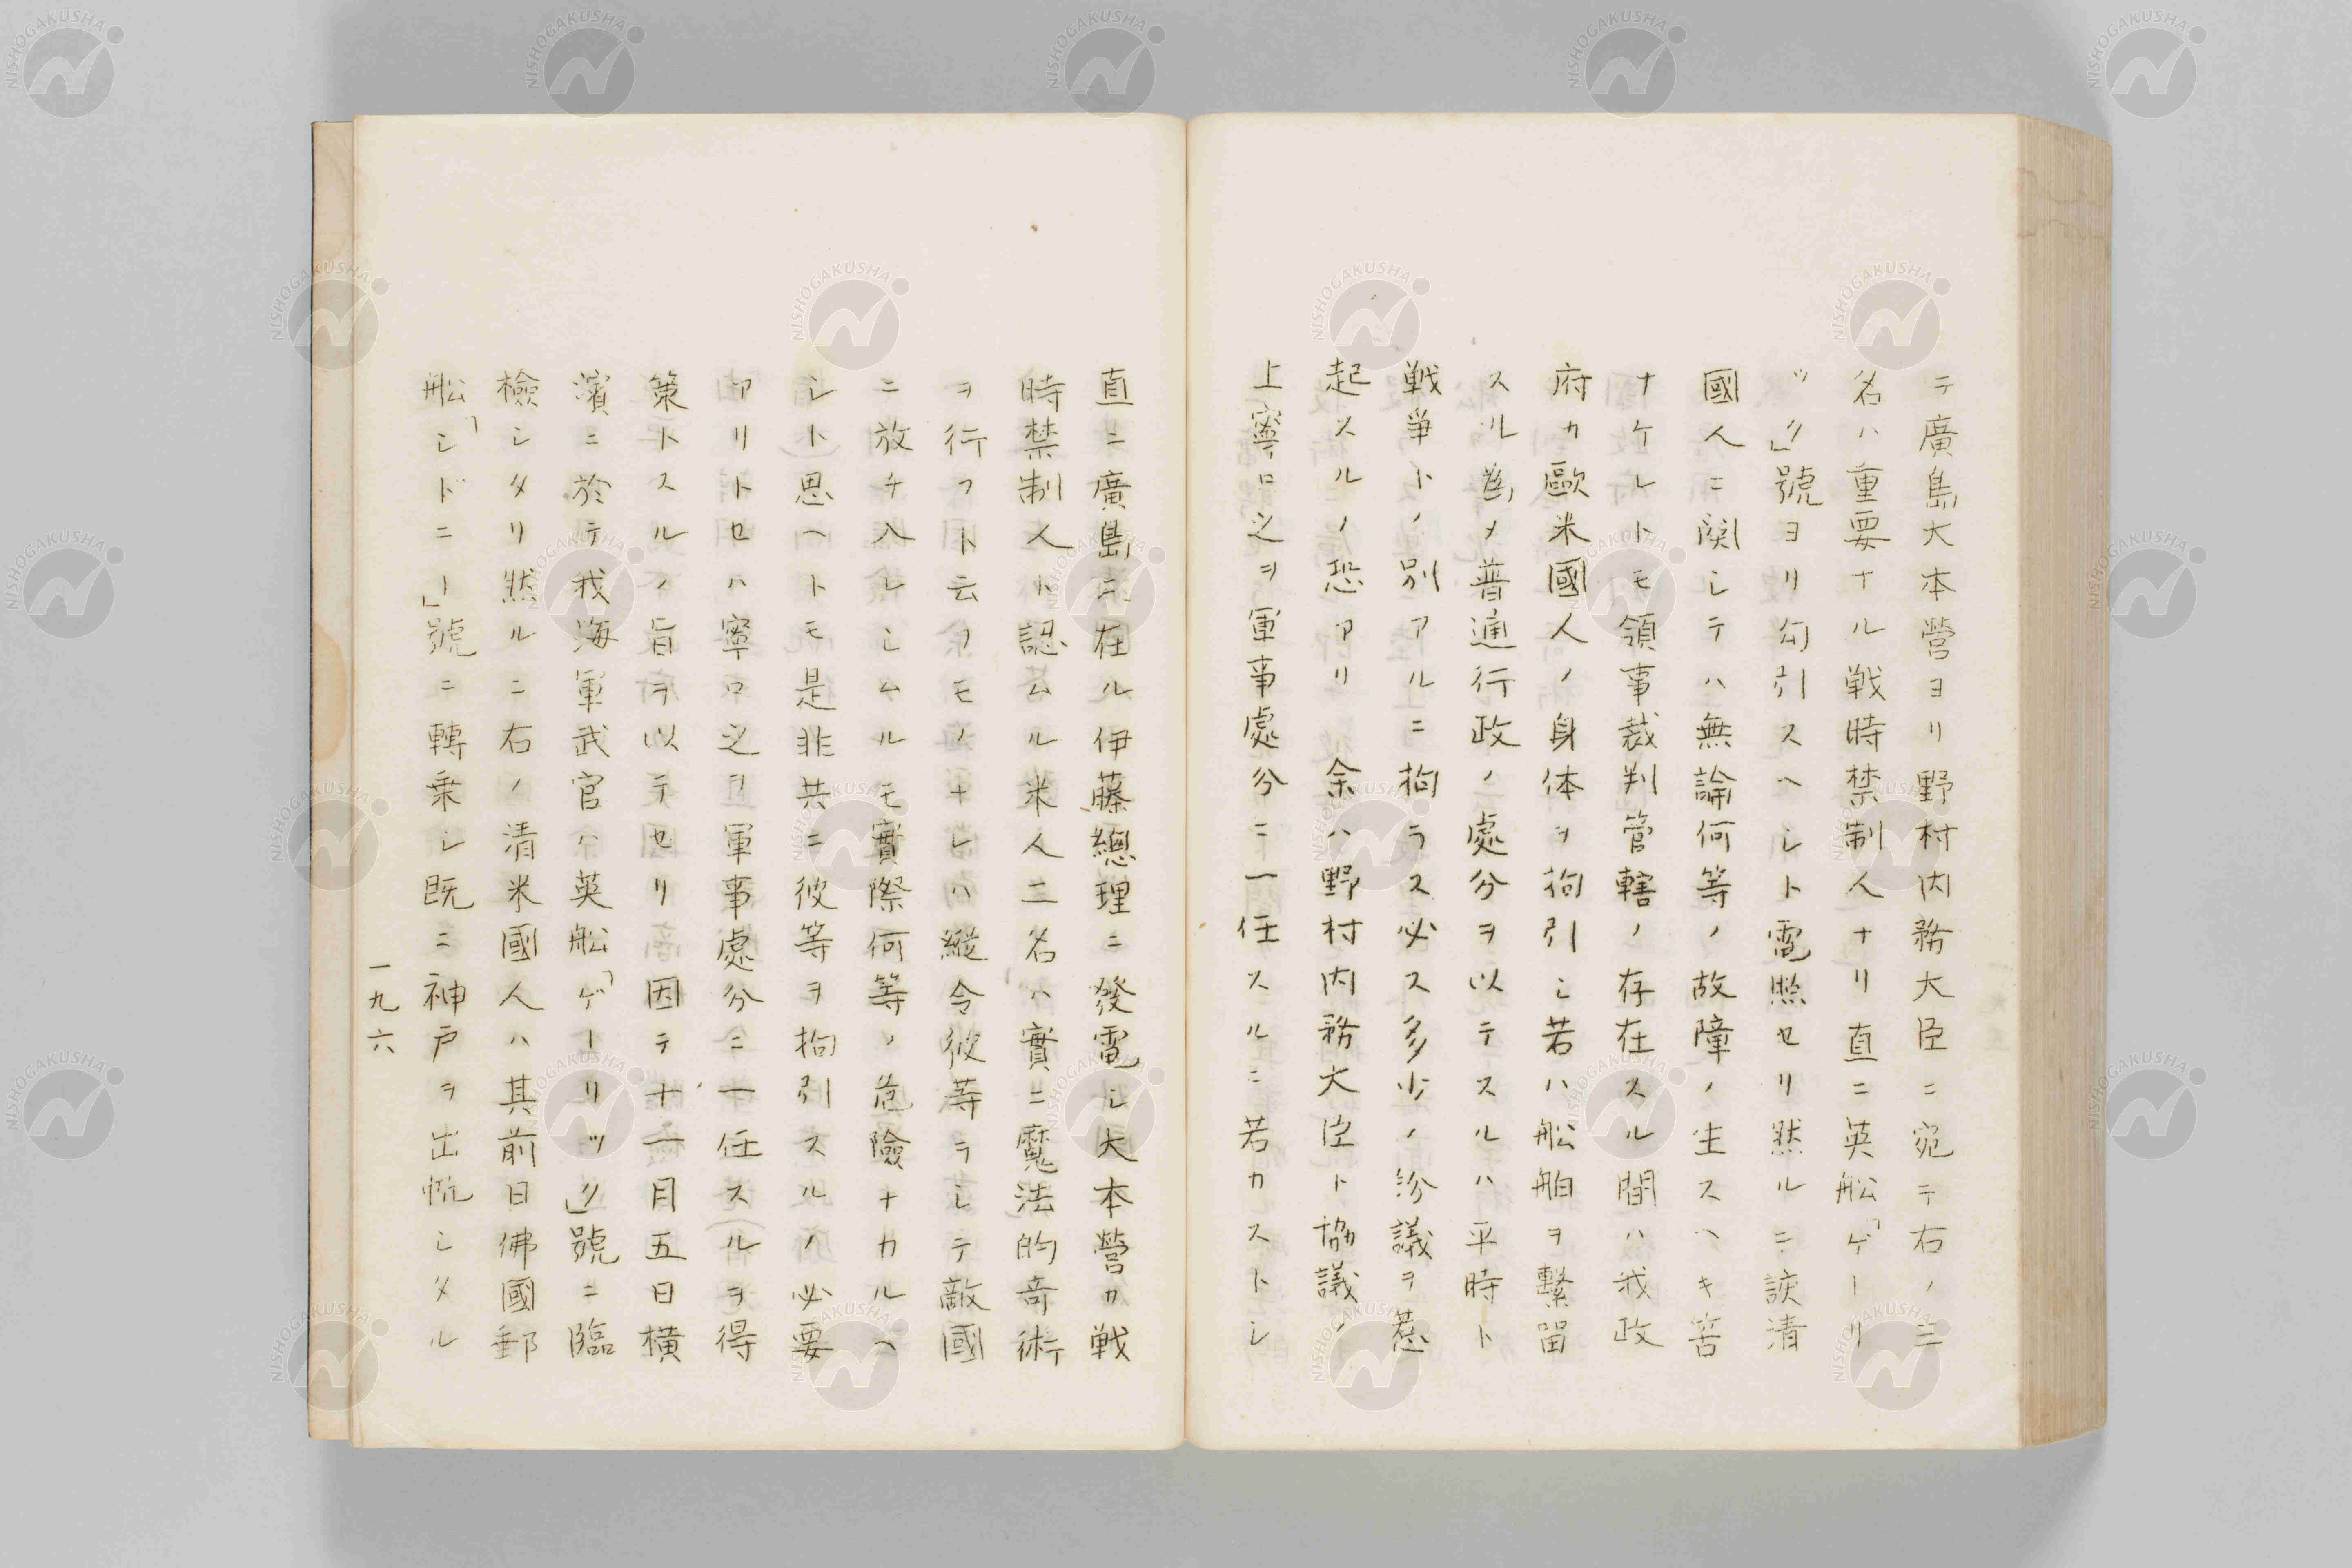 テ廣島大本營ヨリ野村内務大臣ニ宛テ右ノ三
名ハ重要ナル戦時禁制人ナリ直ニ英舩「ゲーリ
ツク」號ヨリ勾引スヘシト電照セリ然ルニ該清
國人ニ関シテハ無論何等ノ故障ノ生スヘキ筈
ナケレトモ領事裁判管轄ノ存在スル間ハ我政
府カ歐米國人ノ身体ヲ拘引シ若ハ舩舶ヲ繋留
スル為メ普通行政ノ處分ヲ以テスルハ平時ト
戦爭トノ別アルニ拘ラス必ス多少ノ紛議ヲ惹
起スルノ恐アリ余ハ野村内務大臣ト協議ノ
上寧ロ之ヲ軍事處分ニ一任スルニ若カストシ
直ニ廣島ニ在ル伊藤總理ニ發電シ大本營カ戦
時禁制人ト認ムル米人二名ハ實ニ魔法的奇術
ヲ行フト云フモノナレハ縦令彼等ヲシテ敵國
ニ放チ入レシムルモ實際何等ノ危險ナカルヘ
シト思ヘトモ是非共ニ彼等ヲ拘引スルノ必要
アリトセハ寧ロ之ヲ軍事處分ニ一任スルヲ得
策トスルノ旨ヲ以テセリ因テ十一月五日横
濱ニ於テ我海軍武官ハ英舩「ゲーリック」號ニ臨
檢シタリ然ルニ右ノ清米國人ハ其前日佛國郵
舩「シドニー」號ニ轉乗シ既ニ神戸ヲ出帆シタル
一九六
NISHOGAKUSHA